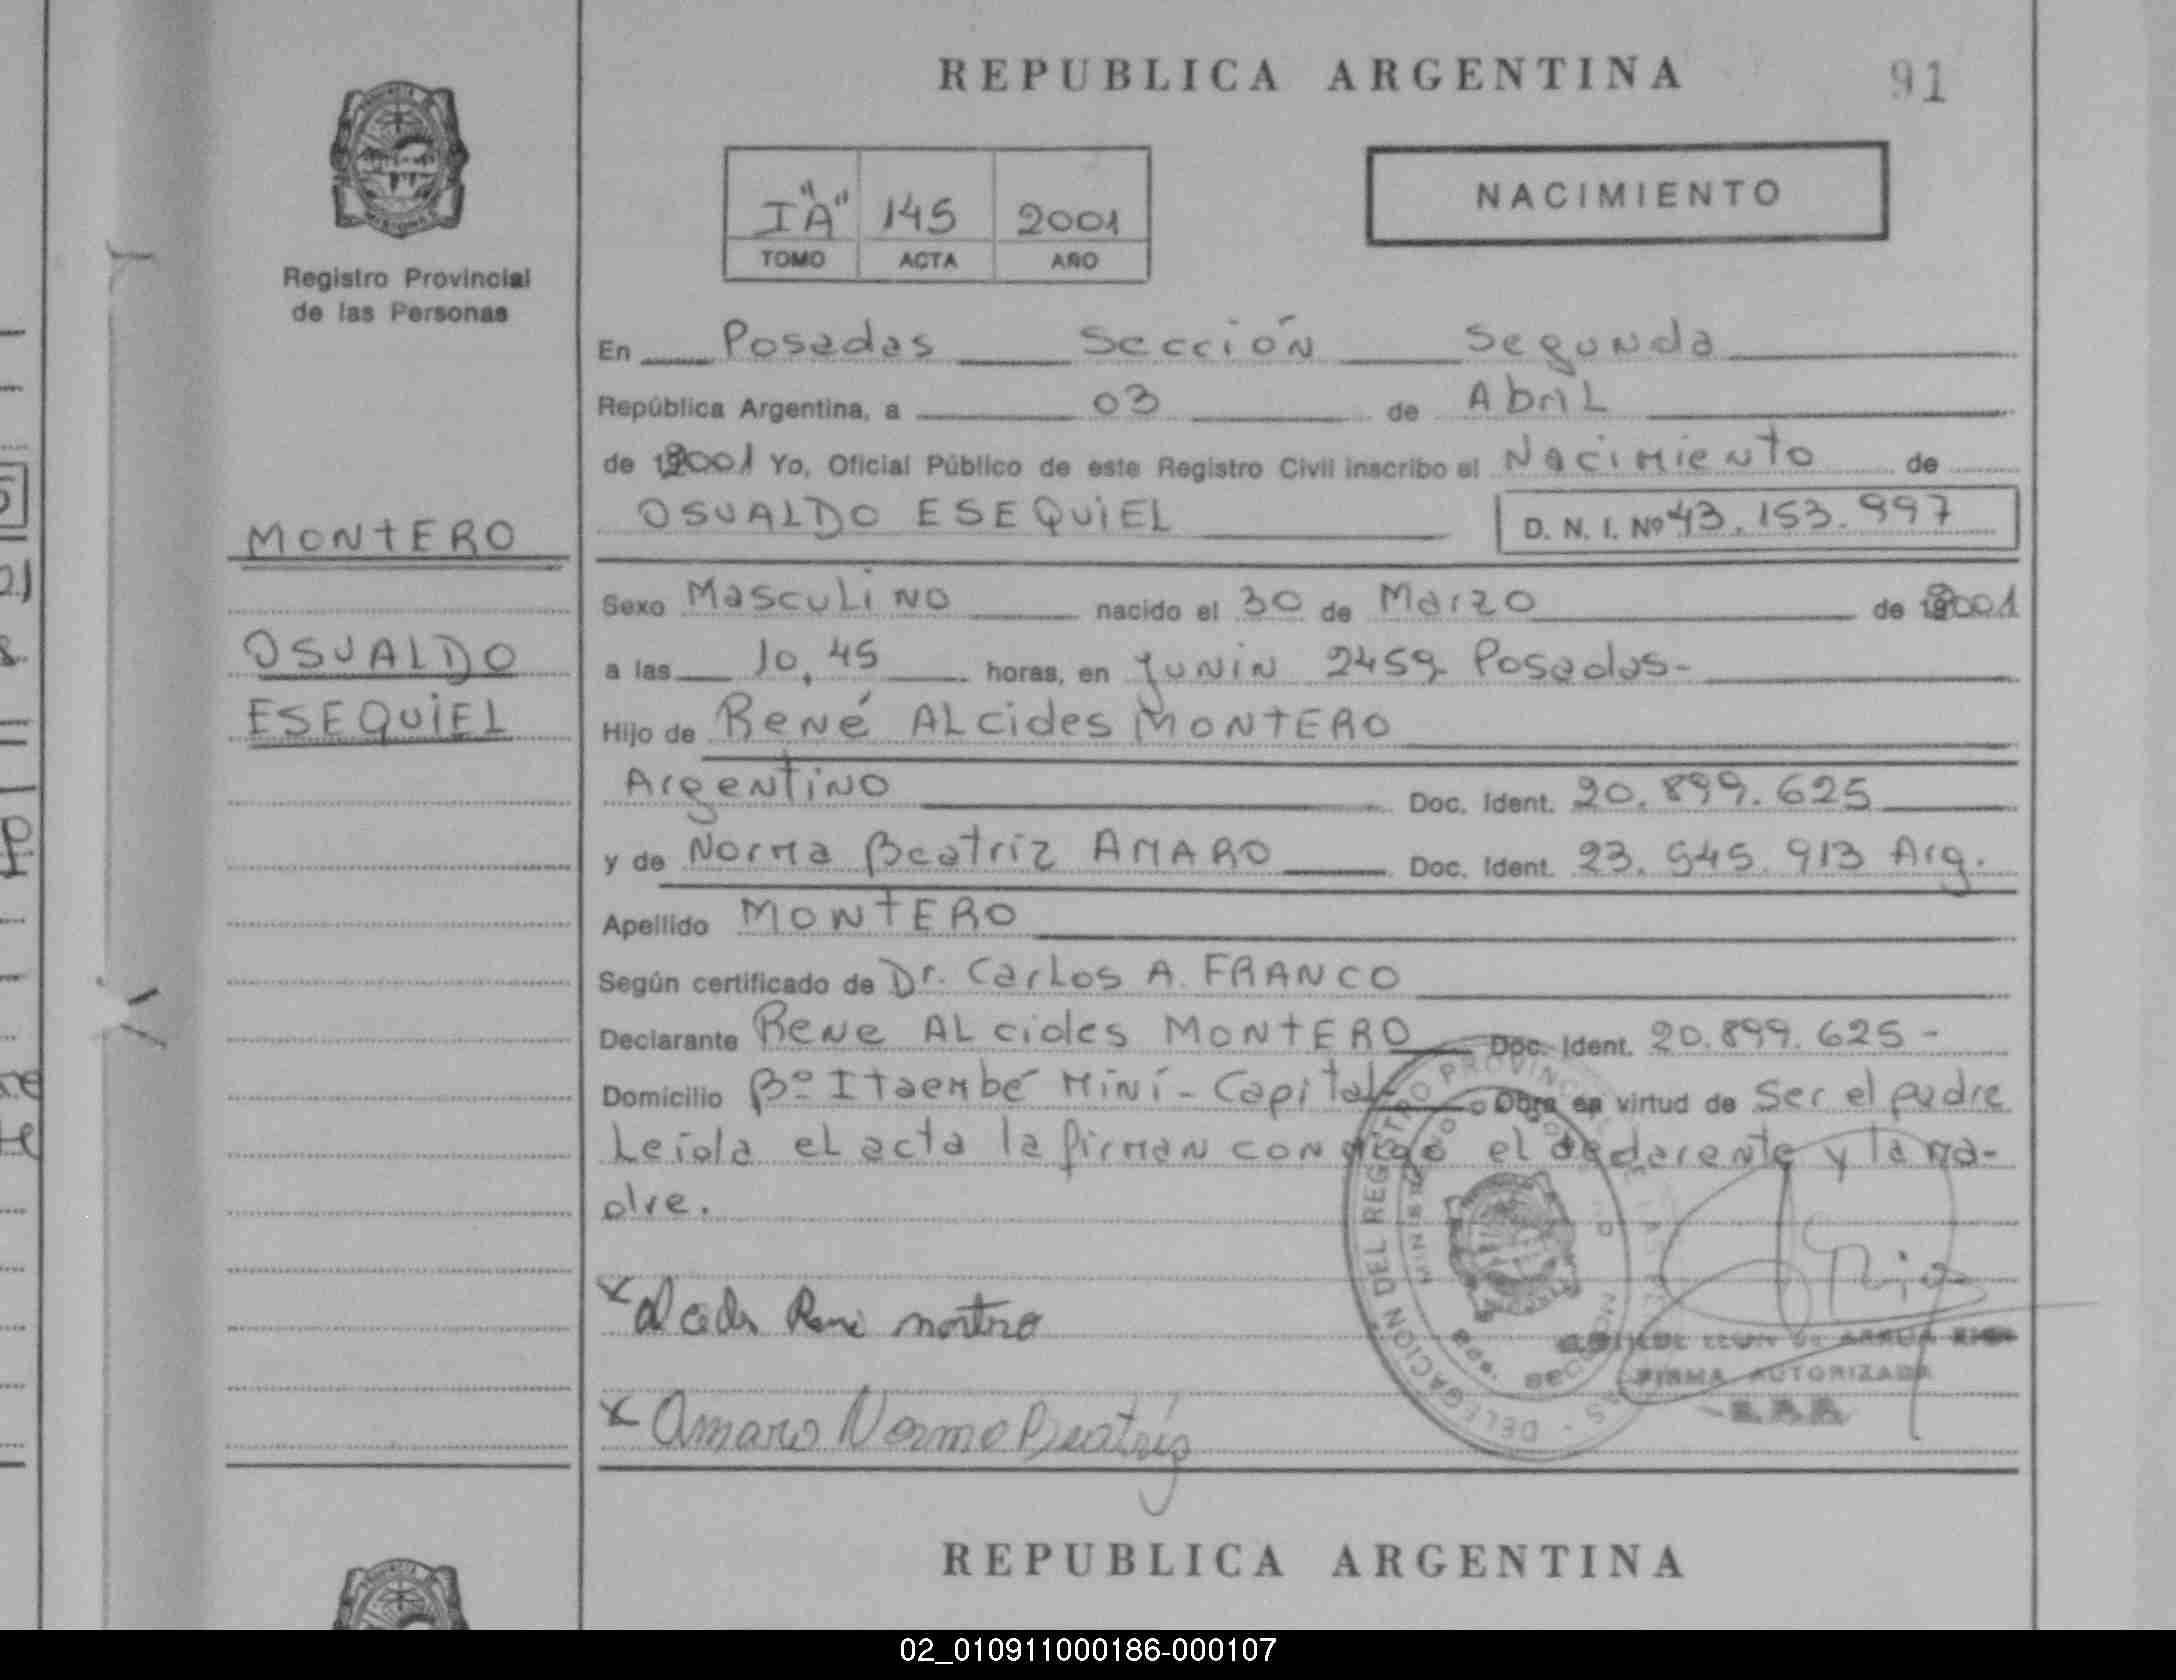 REPUBLICA ARGENTINA
91
I "A" 145 2001
TOMO ACTA AÑO
NACIMIENTO
Registro Provincial
de las Personas
MONTERO
OSVALDO
ESEQUIEL
En Posadas Sección Segunda
República Argentina, a 03 de Abril
de 2001 Yo, Oficial Público de este Registro Civil inscribo el Nacimiento de
OSVALDO ESEQUIEL D. N. I. Nº 43.153.997
Sexo Masculino nacido el 30 de Marzo de 2001
a las 10,45 horas, en Junin 2459 Posadas-
Hijo de René ALcides MONTERO
Argentino Doc. Ident. 20.899.625
y de Norma Beatriz AMARO Doc. Ident. 23.545.913 Arg.
Apellido MONTERO
Según certificado de Dr. Carlos A. FRANCO
Declarante Rene ALcides MONTERO Doc. Ident. 20.899.625-
Domicilio Bº Itaembé Miní - Capital Obra en virtud de ser el padre
Leida el acta la firman con migo el declarante y la ma-
dre.
x Alcides Rene montero
FIRMA AUTORIZADA
x Amaro Norma Beatriz
DELEGACION DEL REGISTRO PROVINCIAL
REPUBLICA ARGENTINA
02_010911000186-000107